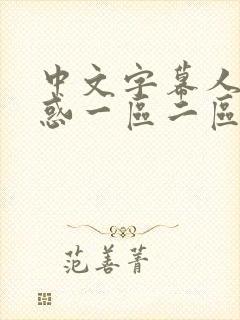 中文字幕人
惑一區二區
范善菁